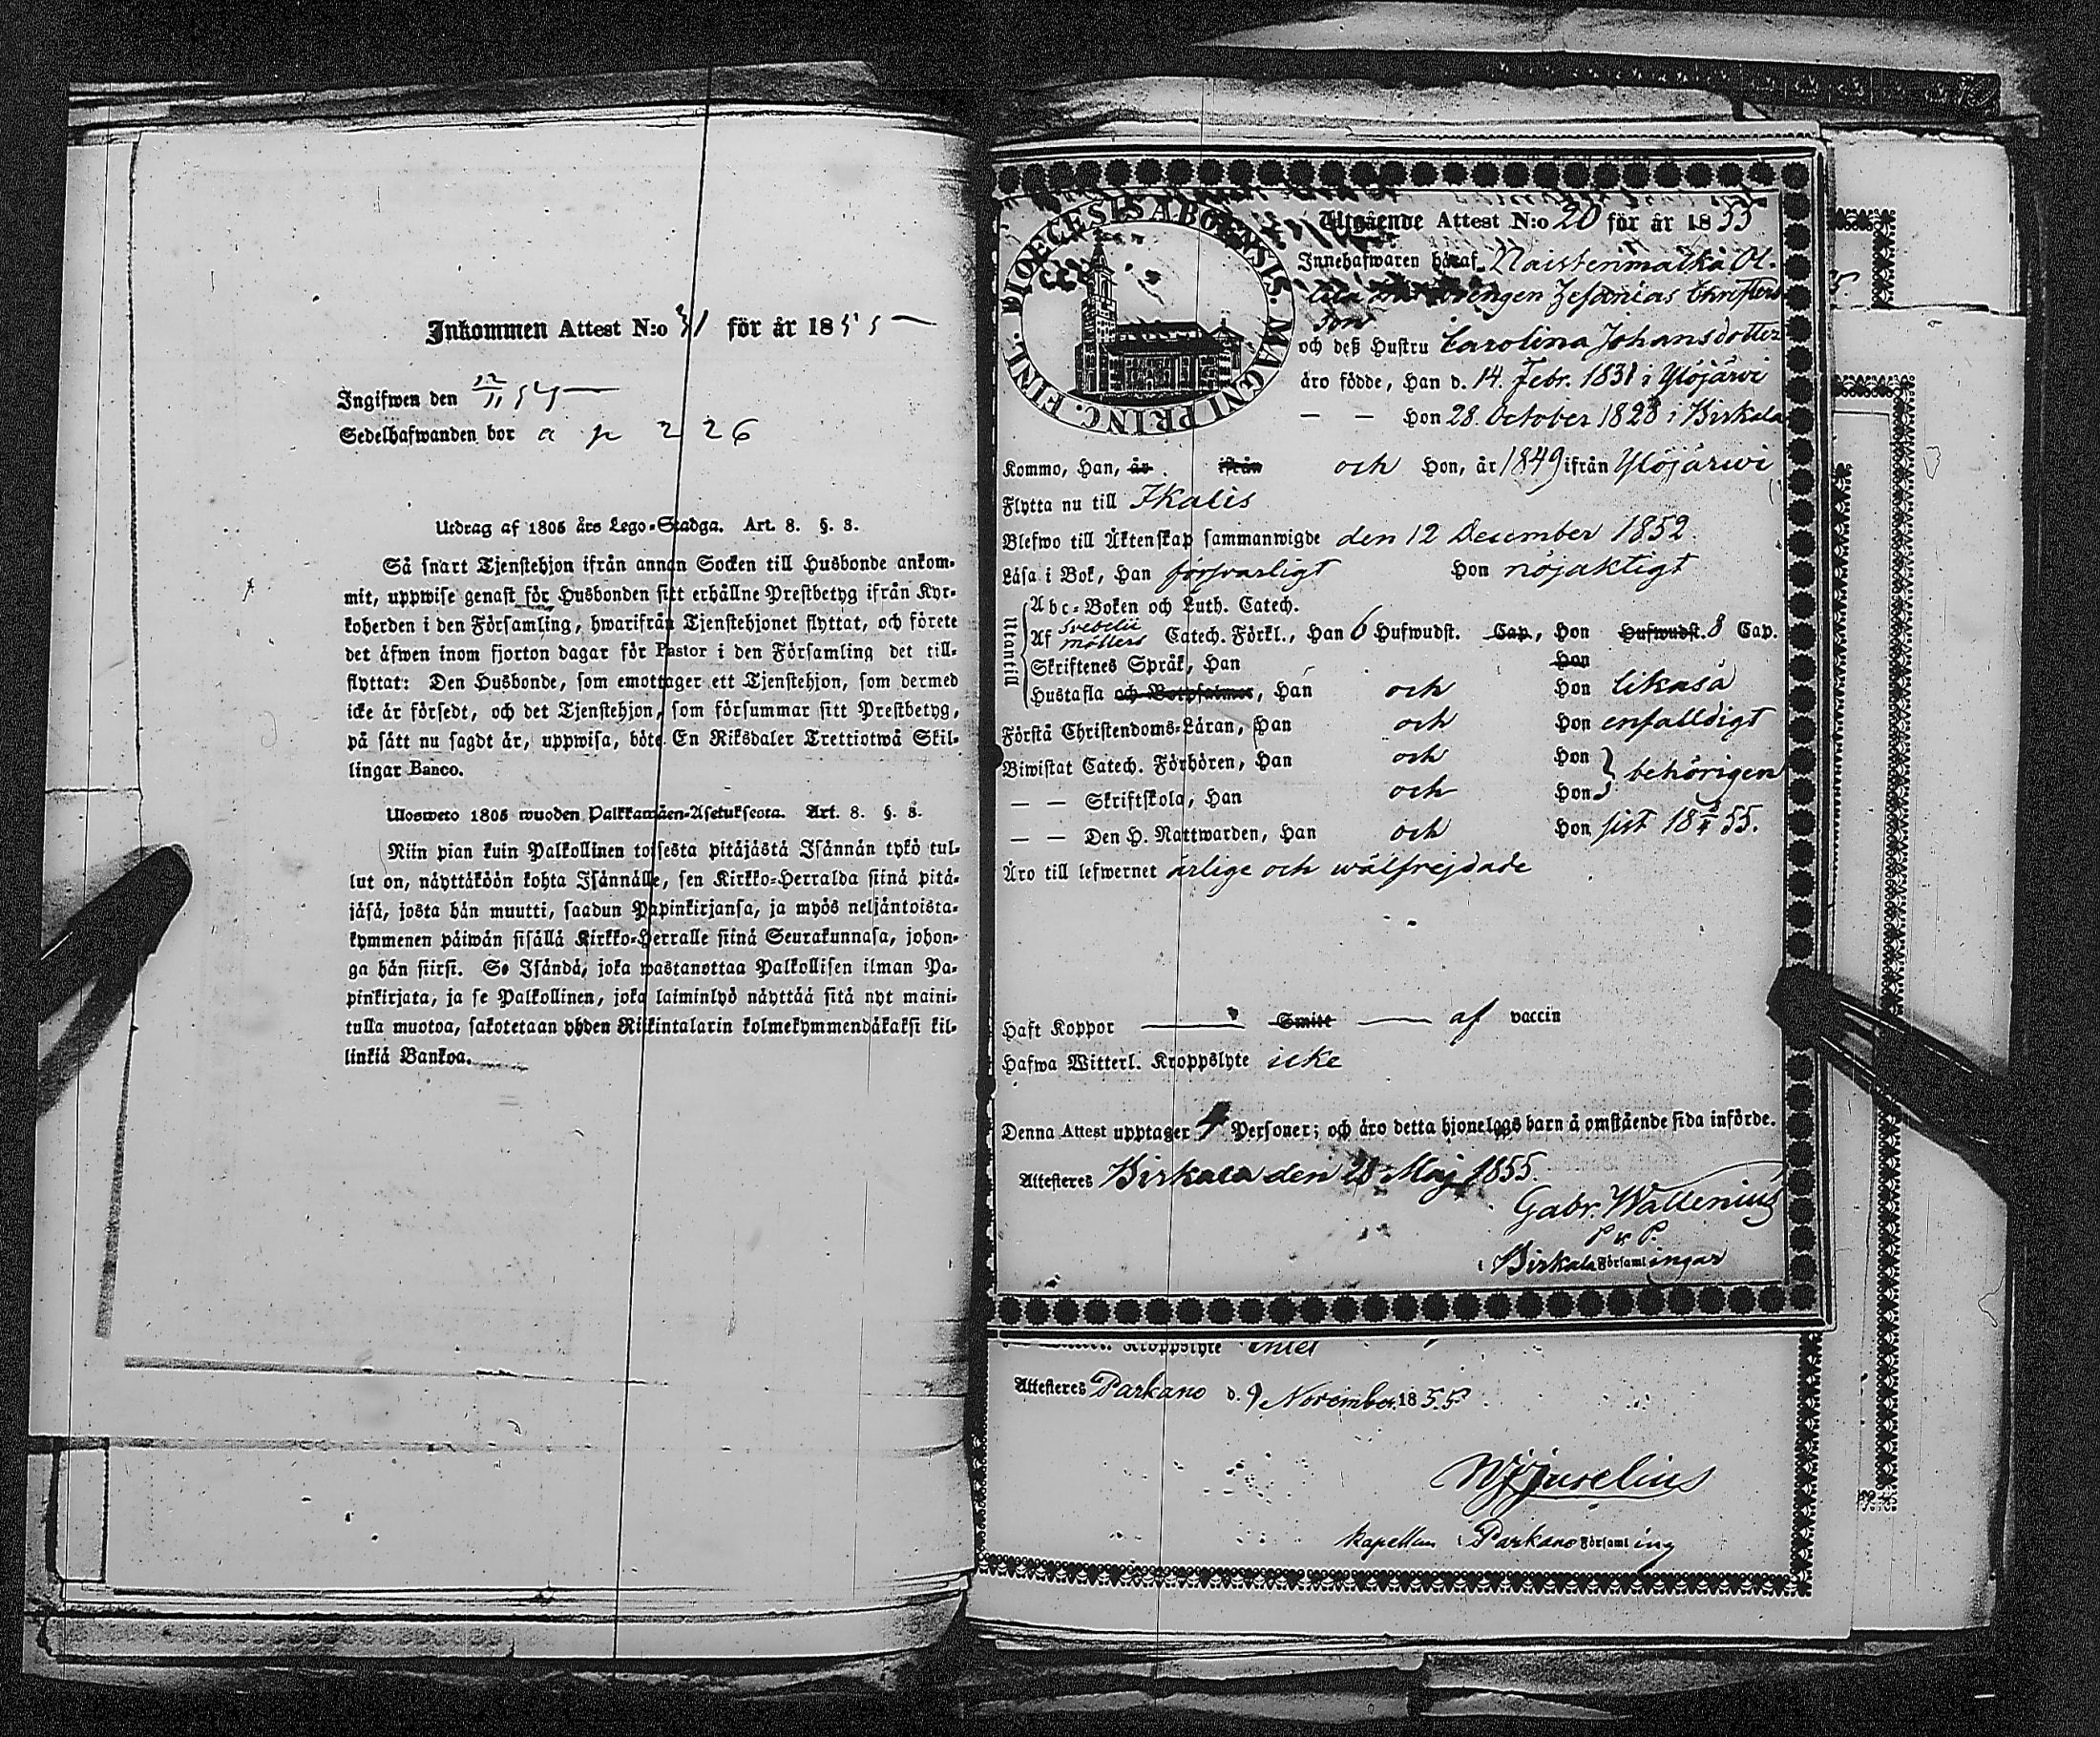 Inkommen Attest N:o 31 för år 1855
Ingifwen den 12/11 54
Sedelhafwanden bor a p 226
Utdrag af 1805 års Lego-Stadga. Art. 8. §. 8.
Så snart Tjenstehjon ifrån annan Socken till Husbonde ankom-
mit, uppwise genast för Husbonden sitt erhållne Prestbetyg ifrån Kyr-
koherden i den Församling, hwarifrån Tjenstehjonet flyttat, och förete
det äfwen inom fjorton dagar för Pastor i den Församling det till-
flyttat: Den Husbonde, som emottager ett Tjenstehjon, som dermed
icke är försedt, och det Tjenstehjon, som försummar sitt Prestbetyg,
på sätt nu sagdt är, uppwisa, böte En Riksdaler Trettiotwå Skil-
lingar Banco.
Ulosweto 1805 wuoden Palkkawäen-Asetuksesta. Art. 8. §. 8.
Niin pian kuin Palkollinen toisesta pitäjästä Isännän tykö tul-
lut on, näyttäköön kohta Isännälle, sen Kirkko-Herralda siinä pitä-
jäsä, josta hän muutti, saadun Papinkirjansa, ja myös neljäntoista-
kymmenen päiwän sisällä Kirkko-Herralle siinä Seurakunnasa, johon-
ga hän siirsi. Se Isändä, joka wastanottaa Palkollisen ilman Pa-
pinkirjata, ja se Palkollinen, joka laiminlyö näyttää sitä nyt maini-
tulla muotoa, sakotetaan yhden Riikintalarin kolmekymmendäkaksi kil-
linkiä Bankoa.
DIOECESIS ABOENSIS. MAGNI PRINC. FINL.
Utgående Attest N:o 20 för år 1855
Innehafwaren häraf Naistenmatka Ol-
drengen Zefanias Christers-
son
och deß Hustru Carolina Johansdotter
äro födde, Han d. 14. Febr. 1831 i Ylöjärwi
— — Hon 28. October 1828 i Birkala
Kommo, Han, år ifrån och Hon, år 1849 ifrån Ylöjärwi
Flytta nu till Ikalis
Blefwo till Äktenskap sammanwigde den 12 December 1852.
Läsa i Bok, Han försvarligt Hon nöjaktigt
Utantill
Abc-Boken och Luth. Catech.
Svebelii
Af Möllers Catech. Förkl., Han 6 Hufwudst. Cap., Hon Hufwudst. 8 Cap.
Skriftenes Språk, Han Hon
Hustafla och Botpsalmer, Han och Hon likaså
Förstå Christendoms-Läran, Han och Hon enfalldigt
Biwistat Catech. Förhören, Han och Hon behörigen
— — Skriftskola, Han och Hon
— — Den H. Nattwarden, Han och Hon sist 18 55.
Äro till lefwernet ärlige och wälfrejdade
Haft Koppor — Smitt — af vaccin
Hafwa Witterl. Kroppslyte icke
Denna Attest upptager 4 Personer; och äro detta hjonelags barn å omstående sida införde.
Attesteres Birkala den 28 Maj 1855.
Gabr. Wallenius
i Birkala Församlingar
Kroppslyte intet
Attesteres Parkano d. 9 November 1855
kapellan i Parkano Församling